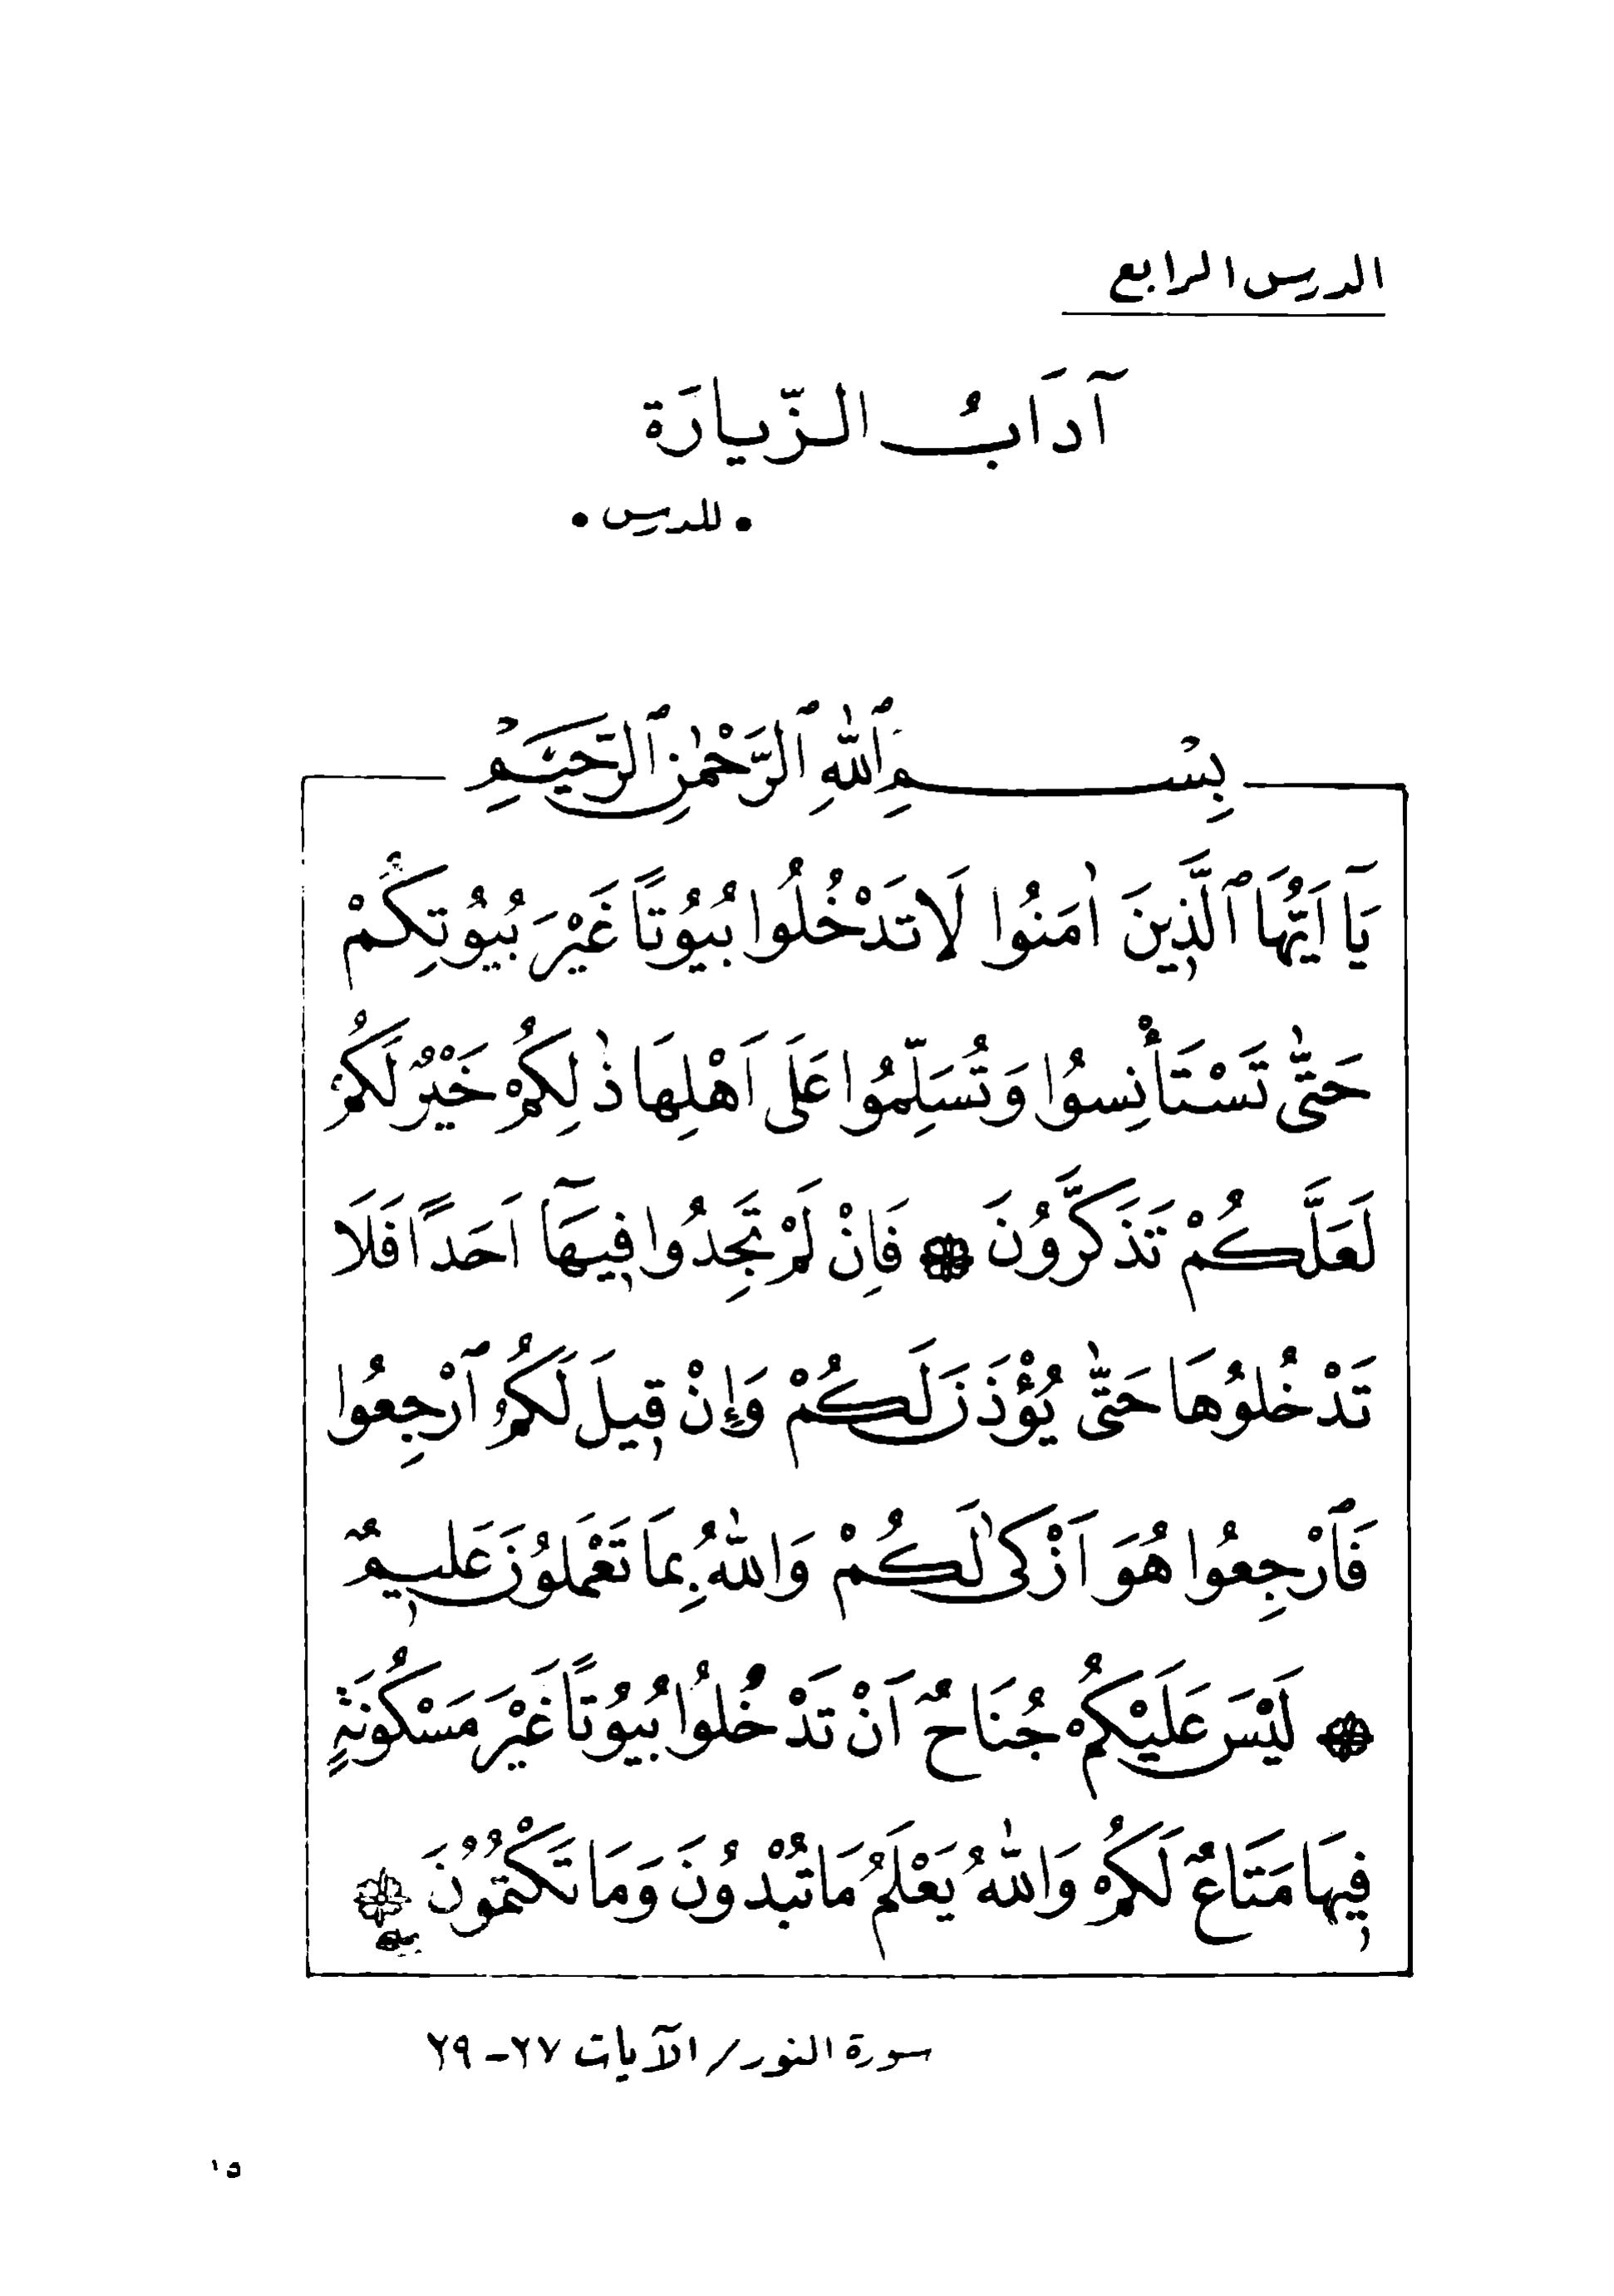 الدرس الرابع
آدَابُ الزِّيارَة
• للدرس •
بِسْمِ ٱللّٰهِ ٱلرَّحْمٰنِ ٱلرَّحِيَمِ
يَآ اَيُّهَا ٱلَّذ۪ينَ اٰمَنُوا لَا تَدْخُلُوا بُيُوتًا غَيْرَ بُيُوتِكُمْ
حَتّٰى تَسْتَأْنِسُوا وَتُسَلِّمُوا عَلَى اَهْلِهَا ذٰلِكُمْ خَيْرٌ لَكُمْ
لَعَلَّكُمْ تَذَكَّرُونَ ۞ فَاِنْ لَمْ تَجِدُوا ف۪يهَآ اَحَدًا فَلَا
تَدْخُلُوهَا حَتّٰى يُؤْذَنَ لَكُمْ وَإِنْ ق۪يلَ لَكُمُ ٱرْجِعُوا
فَٱرْجِعُوا هُوَ اَزْكٰى لَكُمْ وَاللّٰهُ بِمَا تَعْمَلُونَ عَل۪يمٌ
۞ لَيْسَ عَلَيْكُمْ جُنَاحٌ اَنْ تَدْخُلُوا بُيُوتًا غَيْرَ مَسْكُونَةٍ
ف۪يهَا مَتَاعٌ لَكُمْ وَاللّٰهُ يَعْلَمُ مَا تُبْدُونَ وَمَا تَكْتُمُونَ ۞
سورة النور / الآيات ٢٧-٢٩
١٥